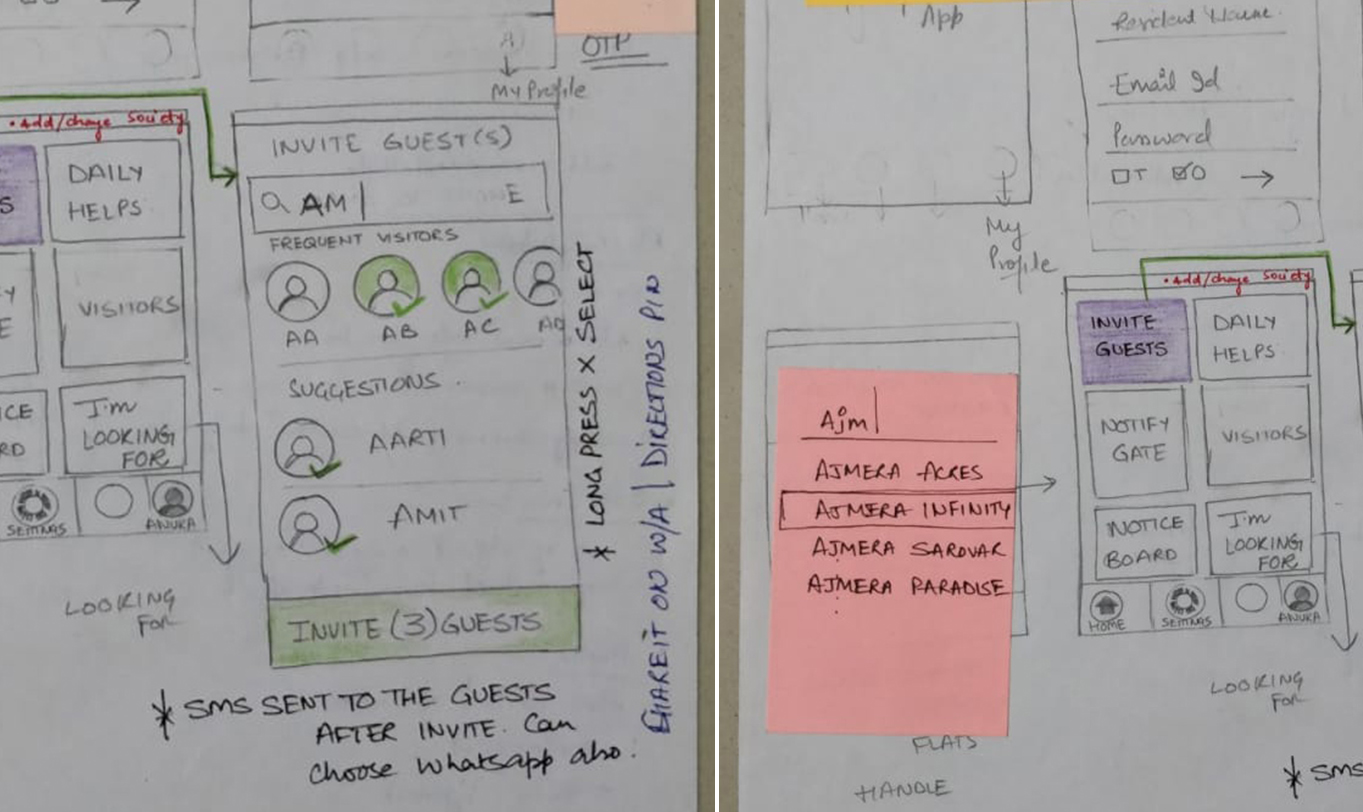 OTP
My Profile
• Add/change Society
S
DAILY
HELPS
Y
E
VISITORS
ICE
RD
I'm
LOOKING
FOR
SETTINGS
ANUKA
LOOKING
FOR
INVITE GUEST(S)
AM|
E
FREQUENT VISITORS
AA
AB
AC
AD
SUGGESTIONS
AARTI
AMIT
INVITE (3) GUESTS
* LONG PRESS X SELECT
SHARE IT ON W/A | DIRECTIONS PIN
* SMS SENT TO THE GUESTS
AFTER INVITE. Can
choose whatsapp also.
App
My
Profile
Resident Name
Email Id
Password
T
O
Ajm|
AJMERA ACRES
AJMERA INFINITY
AJMERA SAROVAR
AJMERA PARADISE
FLATS
HANDLE
• Add/change Society
INVITE
GUESTS
DAILY
HELPS
NOTIFY
GATE
VISITORS
NOTICE
BOARD
I'm
LOOKING
FOR
HOME
SETTINGS
ANUKA
LOOKING
FOR
* SMS